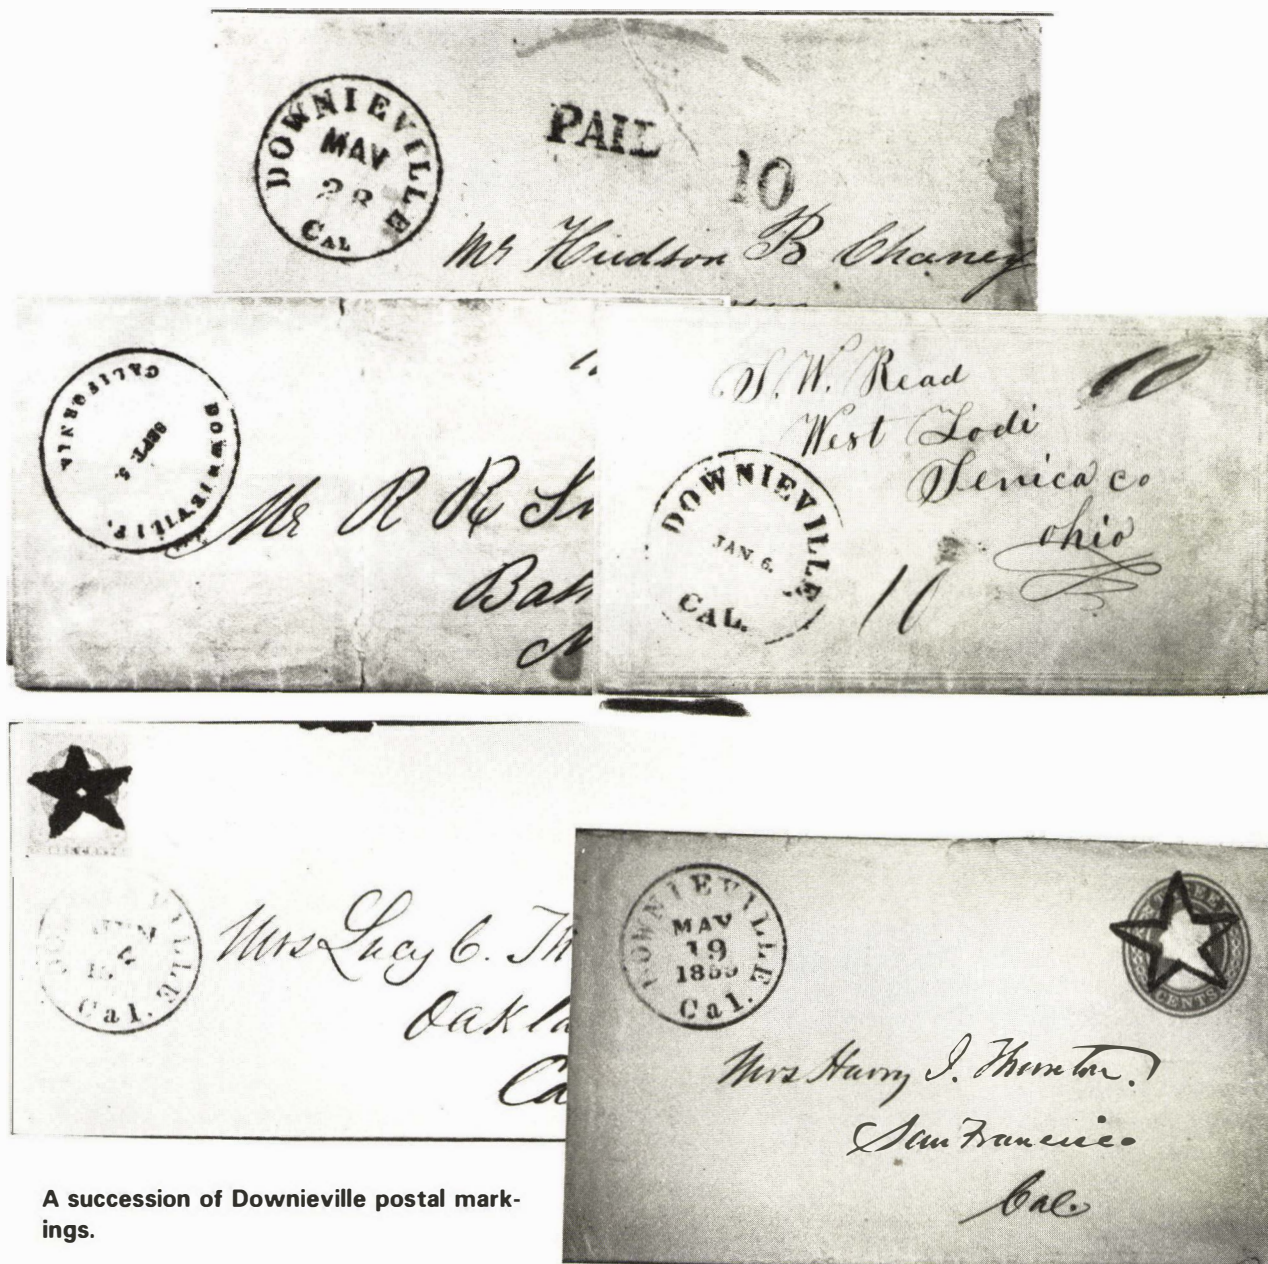 DOWNIEVILLE
MAY
28
CAL
PAID
10
Mr Hudson B Chaney
DOWNIEVILLE.
CALIFORNIA
SEPT. 5.
Mr R R
S. W. Read
West Lodi
Senica co
ohio
10
DOWNIEVILLE
JAN. 6.
CAL.
10
VILLE
Cal.
Mrs Lucy C. Th
Oakla
Ca
DOWNIEVILLE
MAY
19
Cal.
CENTS
Mrs Harry I. Thornton.
San Francisco
Cal.
A succession of Downieville postal mark-
ings.